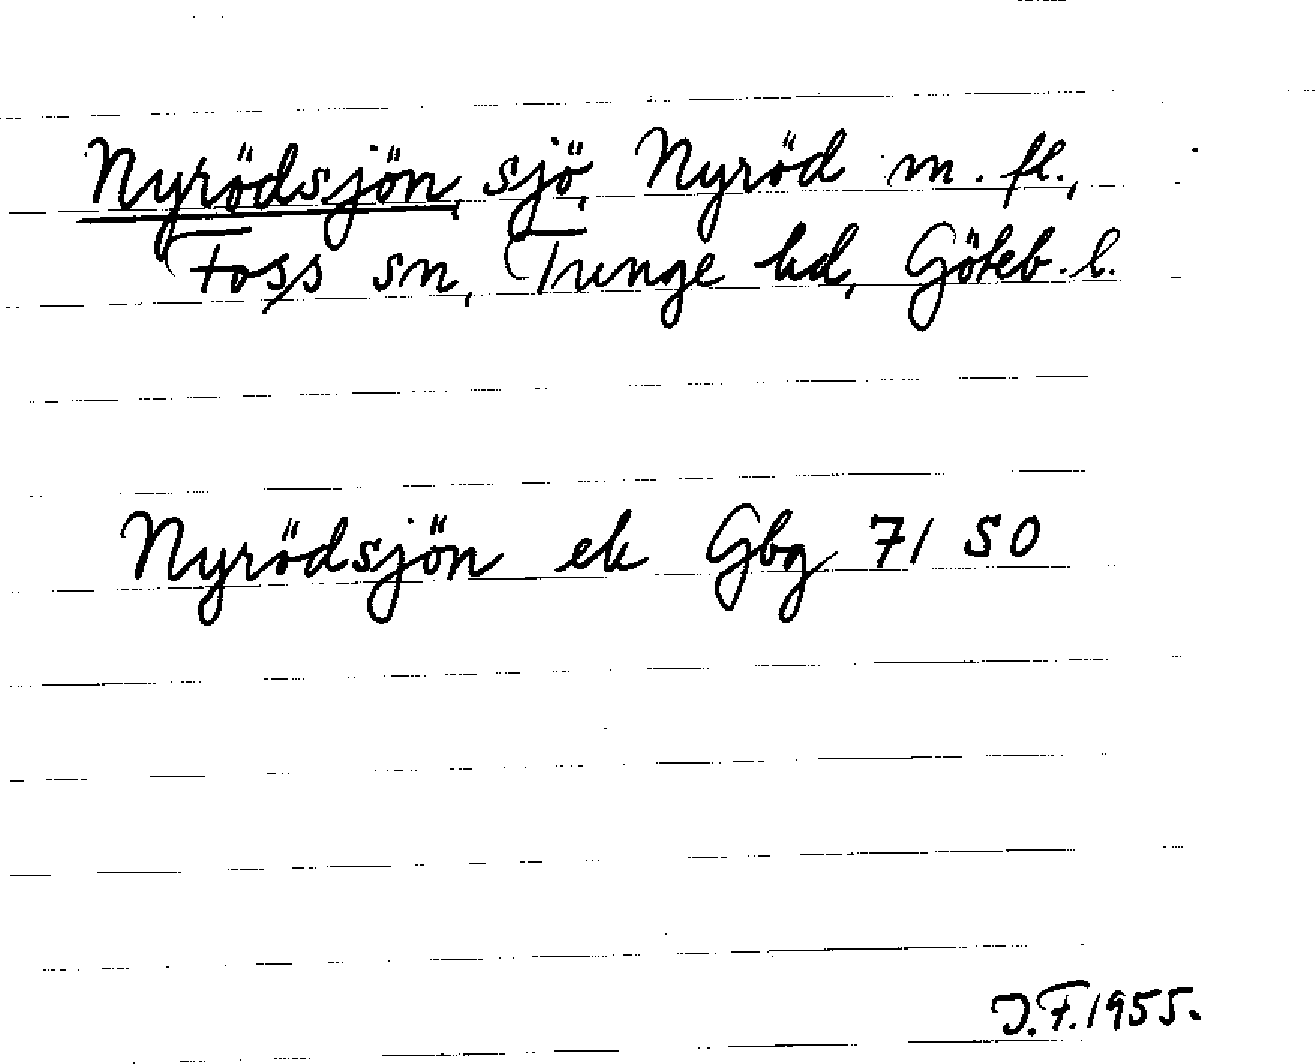 Nyrödsjön, sjö, Nyröd m. fl.,
Foss sn, Tunge hd, Göteb. l.
Nyrödsjön ek Gbg 71 50
J.F. 1955.